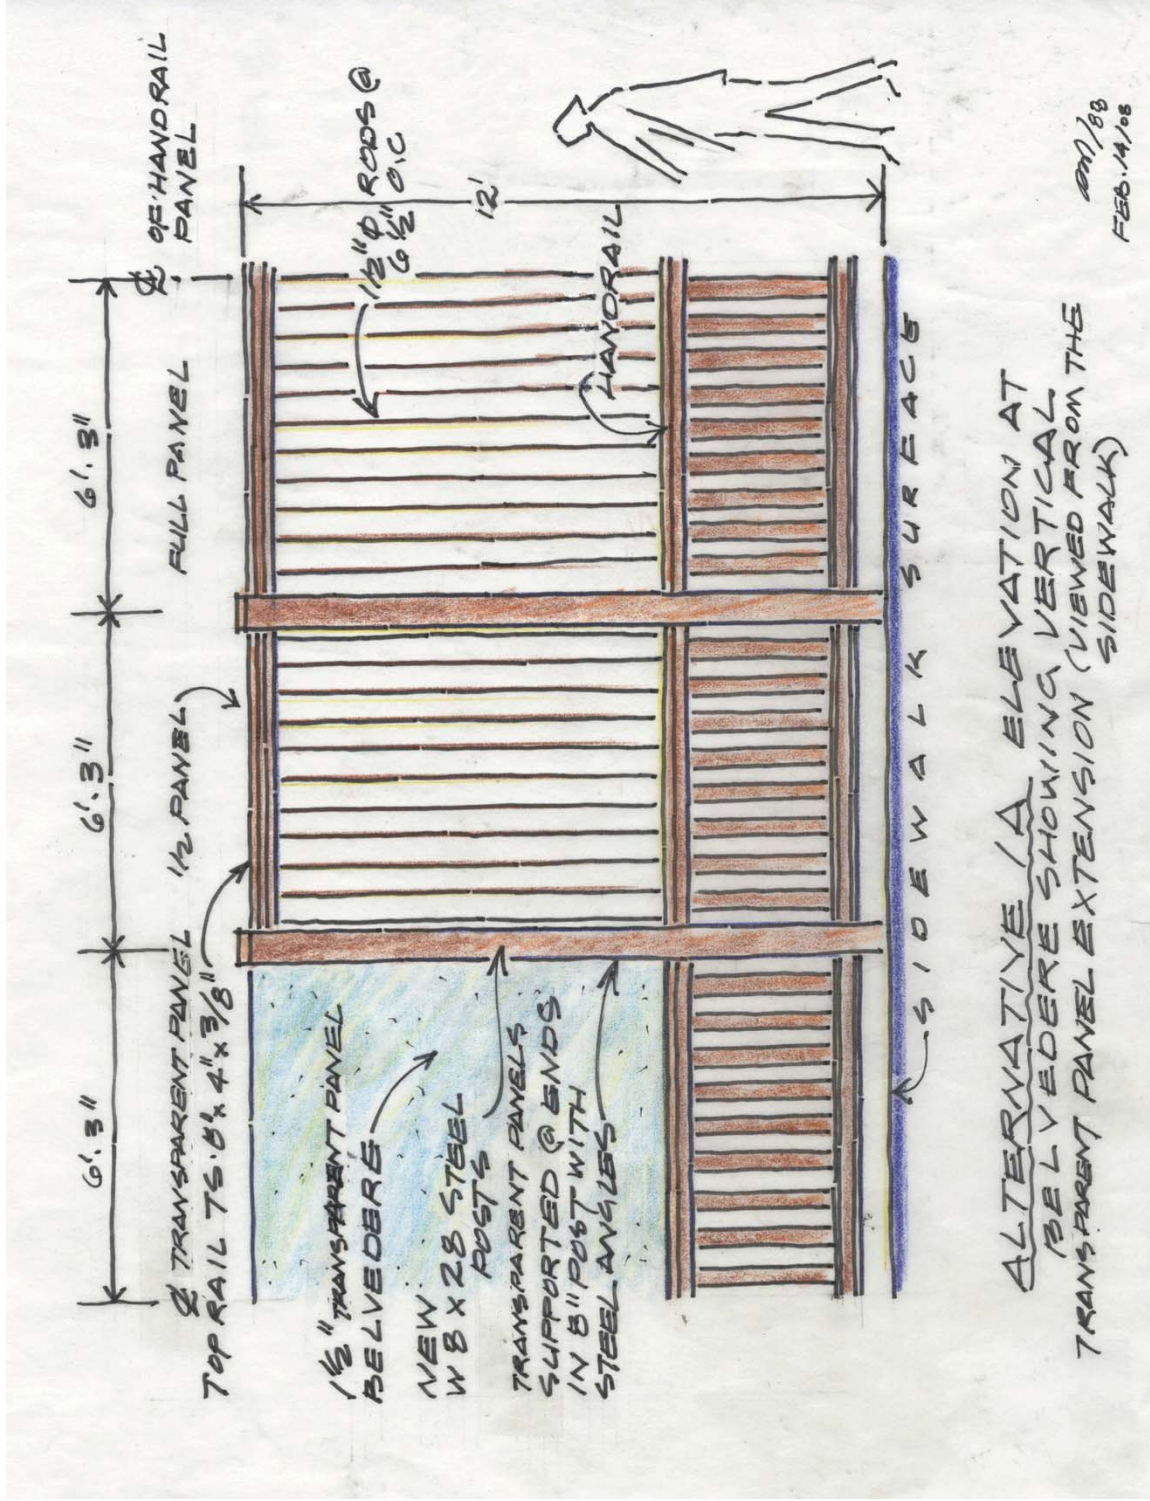 6'.3"
6'.3"
6'.3"
℄ TRANSPARENT PANEL
1/2 PANEL
FULL PANEL
℄ OF HANDRAIL
PANEL
TOP RAIL TS.8"x 4"x 3/8"
1 1/2" TRANSPARENT PANEL
BELVEDERE
NEW
W 8 x 28 STEEL
POSTS
TRANSPARENT PANELS
SUPPORTED @ ENDS
IN 8" POST WITH
STEEL ANGLES
1 1/2" Φ RODS @
6 1/2" O.C
12'
HANDRAIL
SIDEWALK SURFACE
ALTERNATIVE 1A ELEVATION AT
BELVEDERE SHOWING VERTICAL
TRANSPARENT PANEL EXTENSION (VIEWED FROM THE
SIDEWALK)
FEB.14/08